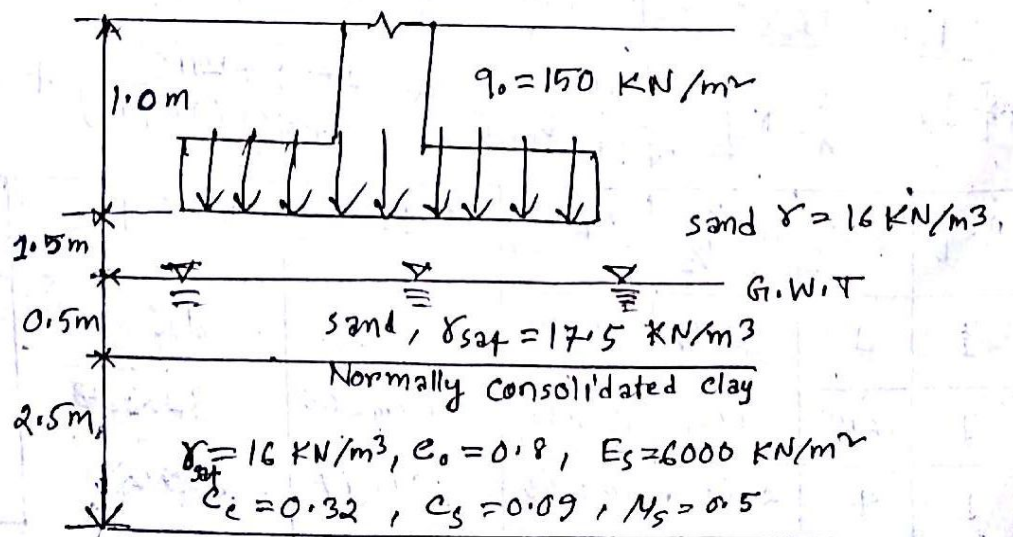 1.0 m
q₀ = 150 KN/m²
sand γ = 16 KN/m3,
1.5m
G.W.T
0.5m
sand, γsat = 17.5 KN/m3
Normally consolidated clay
2.5m,
γsat = 16 KN/m³, e₀ = 0.8, Es = 6000 KN/m²
Cc = 0.32, Cs = 0.09, Ms = 0.5